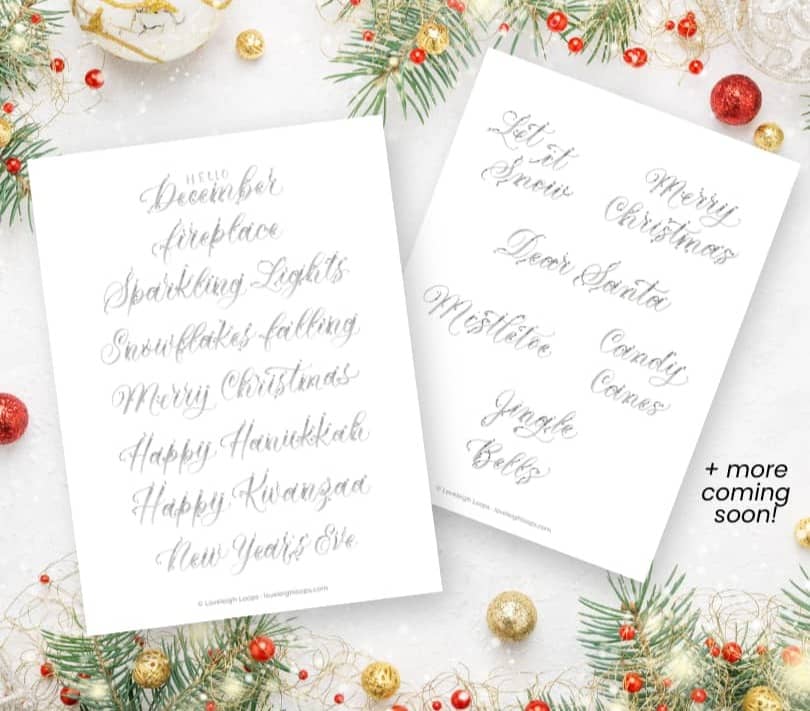 HELLO
December
fireplace
Sparkling Lights
Snowflakes falling
Merry Christmas
Happy Hanukkah
Happy Kwanzaa
New Year's Eve
© Loveleigh Loops · loveleighloops.com
Let it
Snow
Merry
Christmas
Dear Santa
Mistletoe
Candy
Canes
Jingle
Bells
© Loveleigh Loops · loveleighloops.com
+ more
coming
soon!